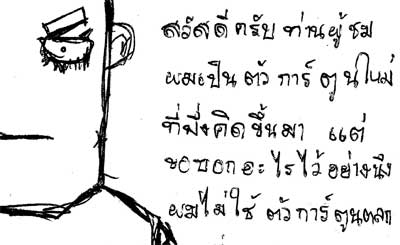 สวัสดีครับ ท่านผู้ชม
ผมเป็น ตัว การ์ ตูนใหม่
ที่พึ่งคิดขึ้นมา แต่
ขอบอกอะไรไว้ อย่างนึง
ผมไม่ใช้ ตัวการ์ตูนตลก